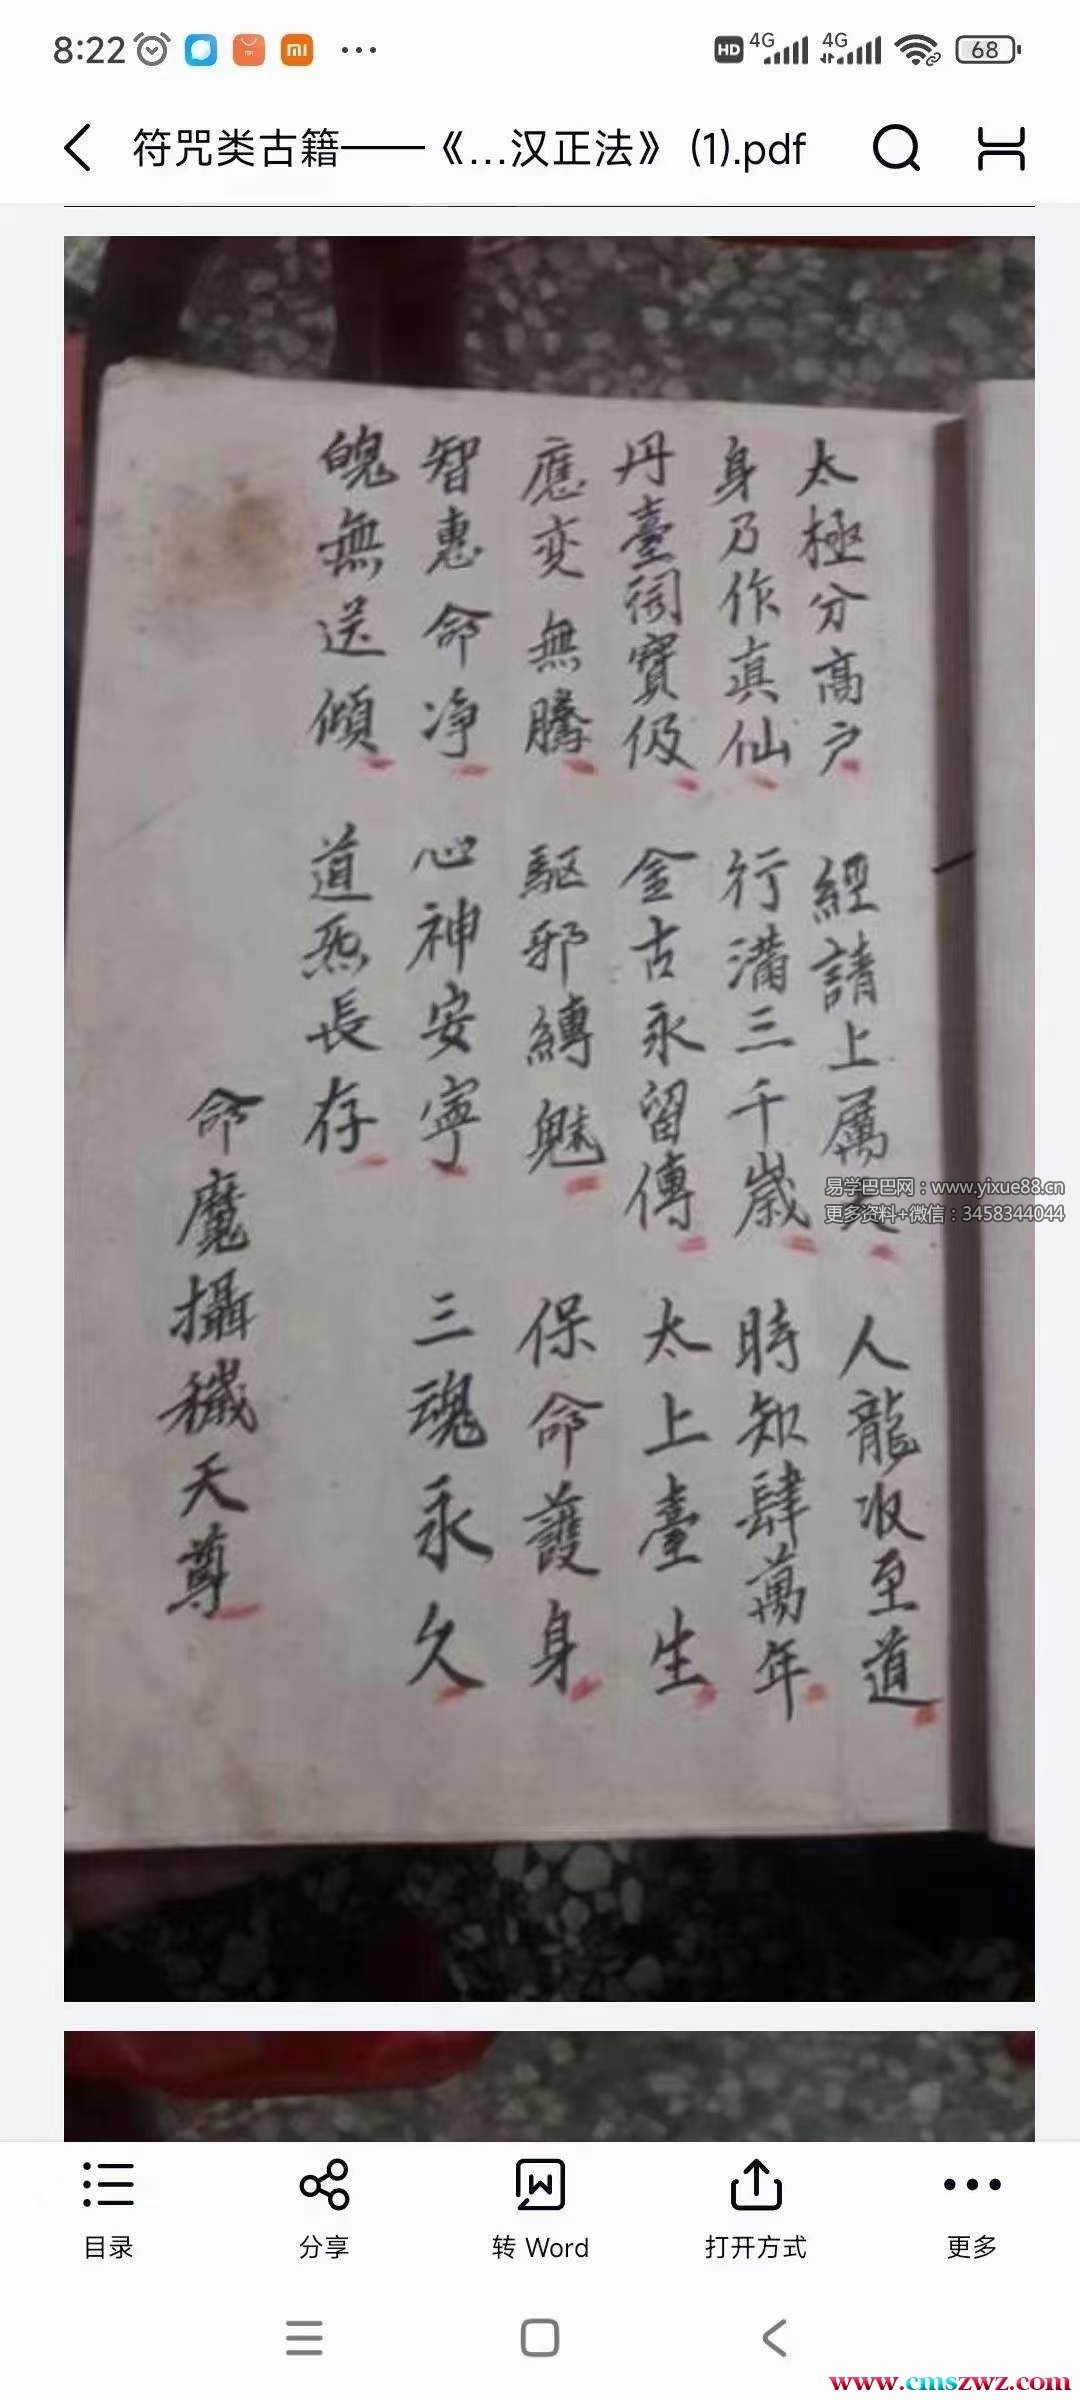 8:22
HD 4G 4G 68
符咒类古籍——《...汉正法》 (1).pdf
太極分高户 經請上厲 人龍收至道
身乃作真仙 行滿三千歲 時知肆萬年
丹臺寶伋 金古永留傳 太上臺生
應变無騰 驱邪縛魅 保命護身
智惠命净 心神安寧 三魂永久
魄無送傾 道炁長存
命魔攝穢天尊
易学巴巴网：www.yixue88.cn
更多资料+微信：3458344044
目录 分享 转 Word 打开方式 更多
www.cmszwz.com